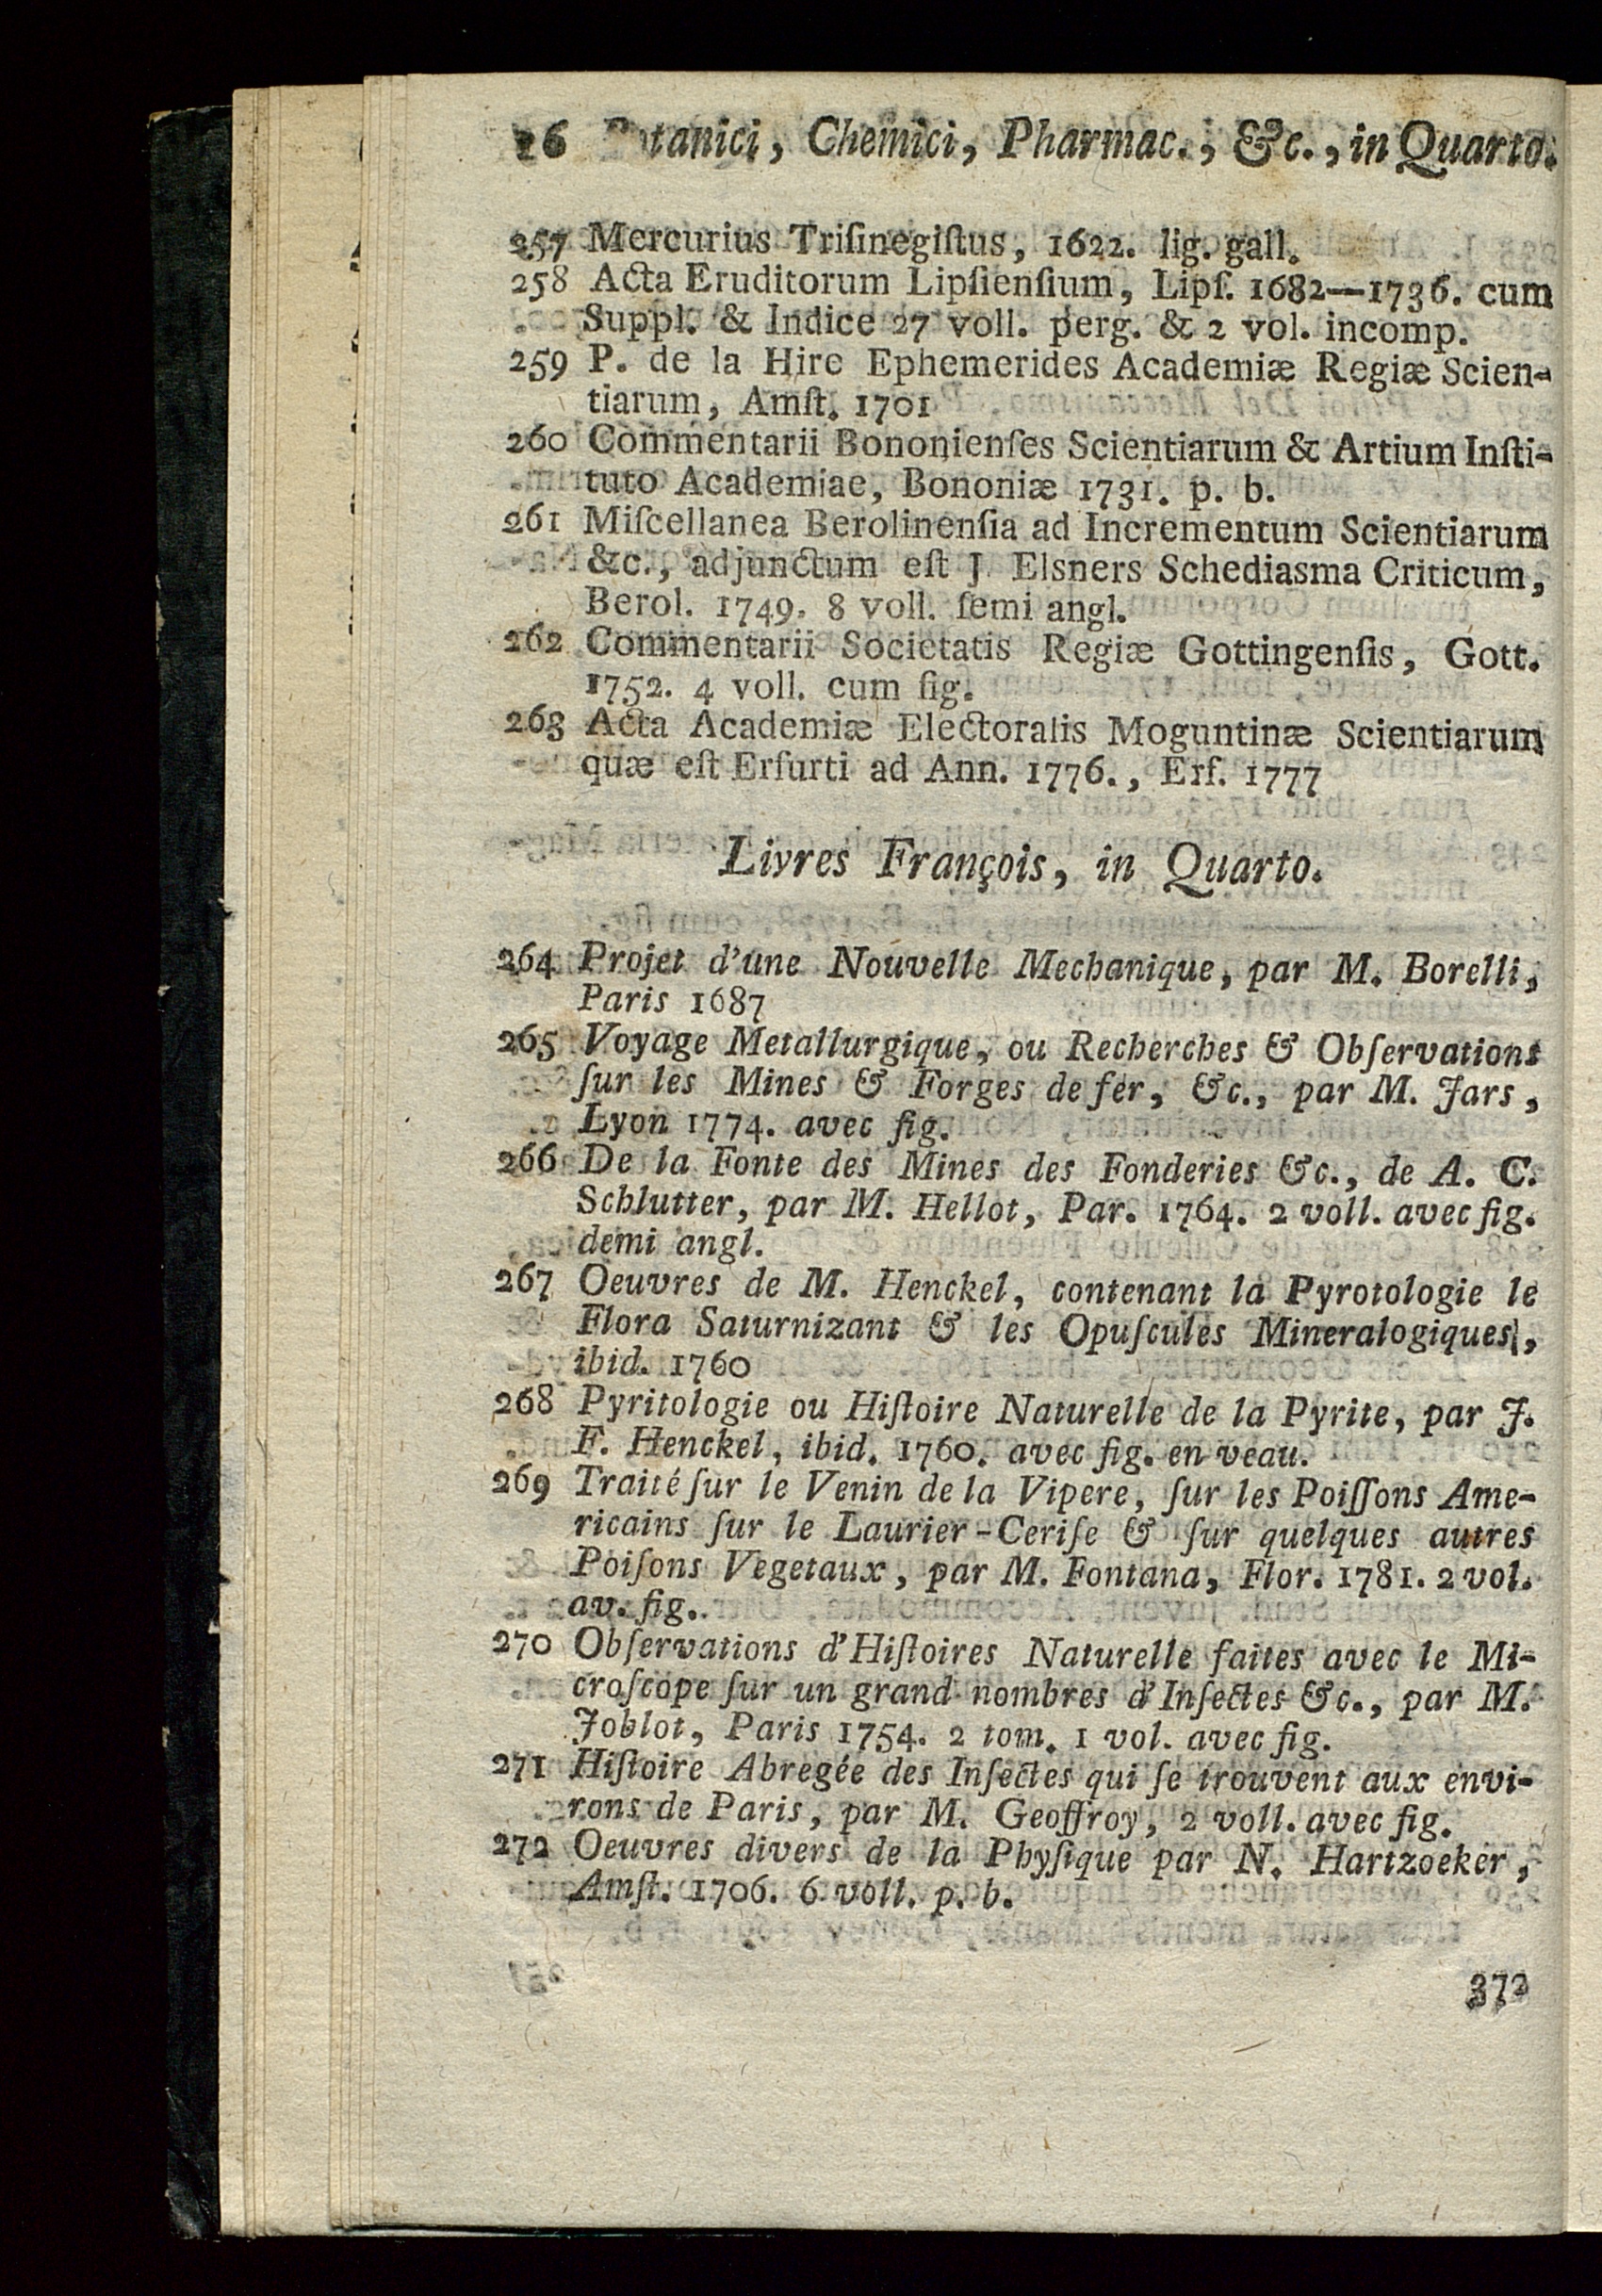 26 Botanici, Chemici, Pharmac., &c., in Quarto.
257 Mercurius Triſinegiſtus, 1622. lig. gall.
258 Acta Eruditorum Lipſienſium, Lipſ. 1682—1736. cum
Suppl. & Indice 27 voll. perg. & 2 vol. incomp.
259 P. de la Hire Ephemerides Academiæ Regiæ Scien-
tiarum, Amſt. 1701
260 Commentarii Bononienſes Scientiarum & Artium Inſti-
tuto Academiae, Bononiæ 1731. p. b.
261 Miſcellanea Berolinenſia ad Incrementum Scientiarum
&c., adjunctum eſt J. Elsners Schediasma Criticum,
Berol. 1749. 8 voll. ſemi angl.
262 Commentarii Societatis Regiæ Gottingenſis, Gott.
1752. 4 voll. cum fig.
263 Acta Academiæ Electoralis Moguntinæ Scientiarum
quæ eſt Erfurti ad Ann. 1776., Erf. 1777
Livres François, in Quarto.
264 Projet d'une Nouvelle Mechanique, par M. Borelli,
Paris 1687
265 Voyage Metallurgique, ou Recherches & Obſervations
ſur les Mines & Forges de fer, &c., par M. Jars,
Lyon 1774. avec fig.
266 De la Fonte des Mines des Fonderies &c., de A. C.
Schlutter, par M. Hellot, Par. 1764. 2 voll. avec fig.
demi angl.
267 Oeuvres de M. Henckel, contenant la Pyrotologie le
Flora Saturnizant & les Opuſcules Mineralogiques,
ibid. 1760
268 Pyritologie ou Hiſtoire Naturelle de la Pyrite, par J.
F. Henckel, ibid. 1760. avec fig. en veau.
269 Traité ſur le Venin de la Vipere, ſur les Poiſſons Ame-
ricains ſur le Laurier-Ceriſe & ſur quelques autres
Poiſons Vegetaux, par M. Fontana, Flor. 1781. 2 vol.
av. fig.
270 Obſervations d'Hiſtoires Naturelle faites avec le Mi-
croſcope ſur un grand nombres d'Inſectes &c., par M.
Joblot, Paris 1754. 2 tom. 1 vol. avec fig.
271 Hiſtoire Abregée des Inſectes qui ſe trouvent aux envi-
rons de Paris, par M. Geoffroy, 2 voll. avec fig.
272 Oeuvres divers de la Phyſique par N. Hartzoeker,
Amſt. 1706. 6 voll. p. b.
372